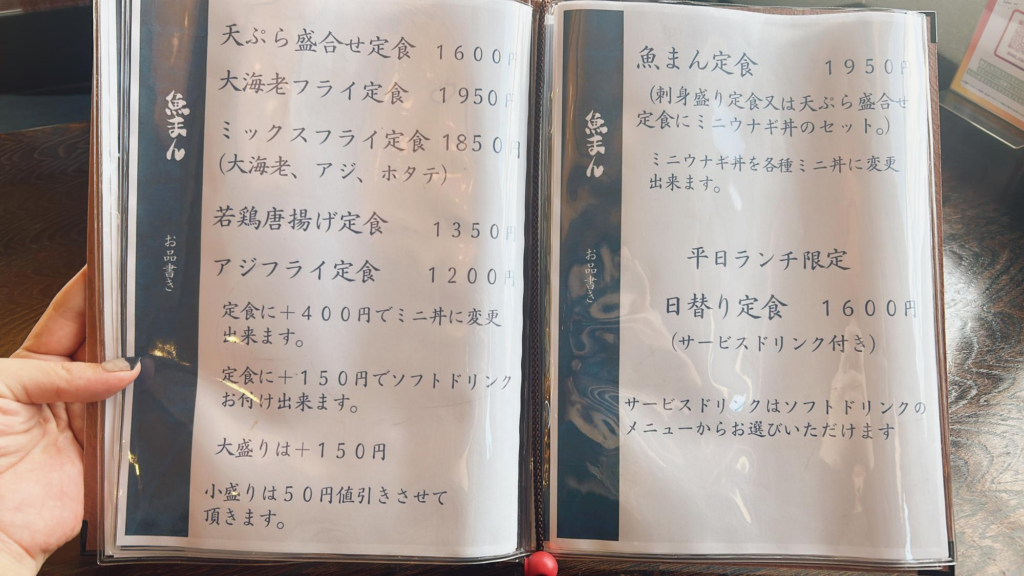 魚まん
お品書き
天ぷら盛合せ定食 1600円
大海老フライ定食 1950円
ミックスフライ定食 1850円
(大海老、アジ、ホタテ)
若鶏唐揚げ定食 1350円
アジフライ定食 1200円
定食に＋400円でミニ丼に変更
出来ます。
定食に＋150円でソフトドリンク
お付け出来ます。
大盛りは＋150円
小盛りは50円値引きさせて
頂きます。
魚まん
お品書き
魚まん定食 1950円
(刺身盛り定食又は天ぷら盛合せ
定食にミニウナギ丼のセット。)
ミニウナギ丼を各種ミニ丼に変更
出来ます。
平日ランチ限定
日替り定食 1600円
(サービスドリンク付き)
サービスドリンクはソフトドリンクの
メニューからお選びいただけます